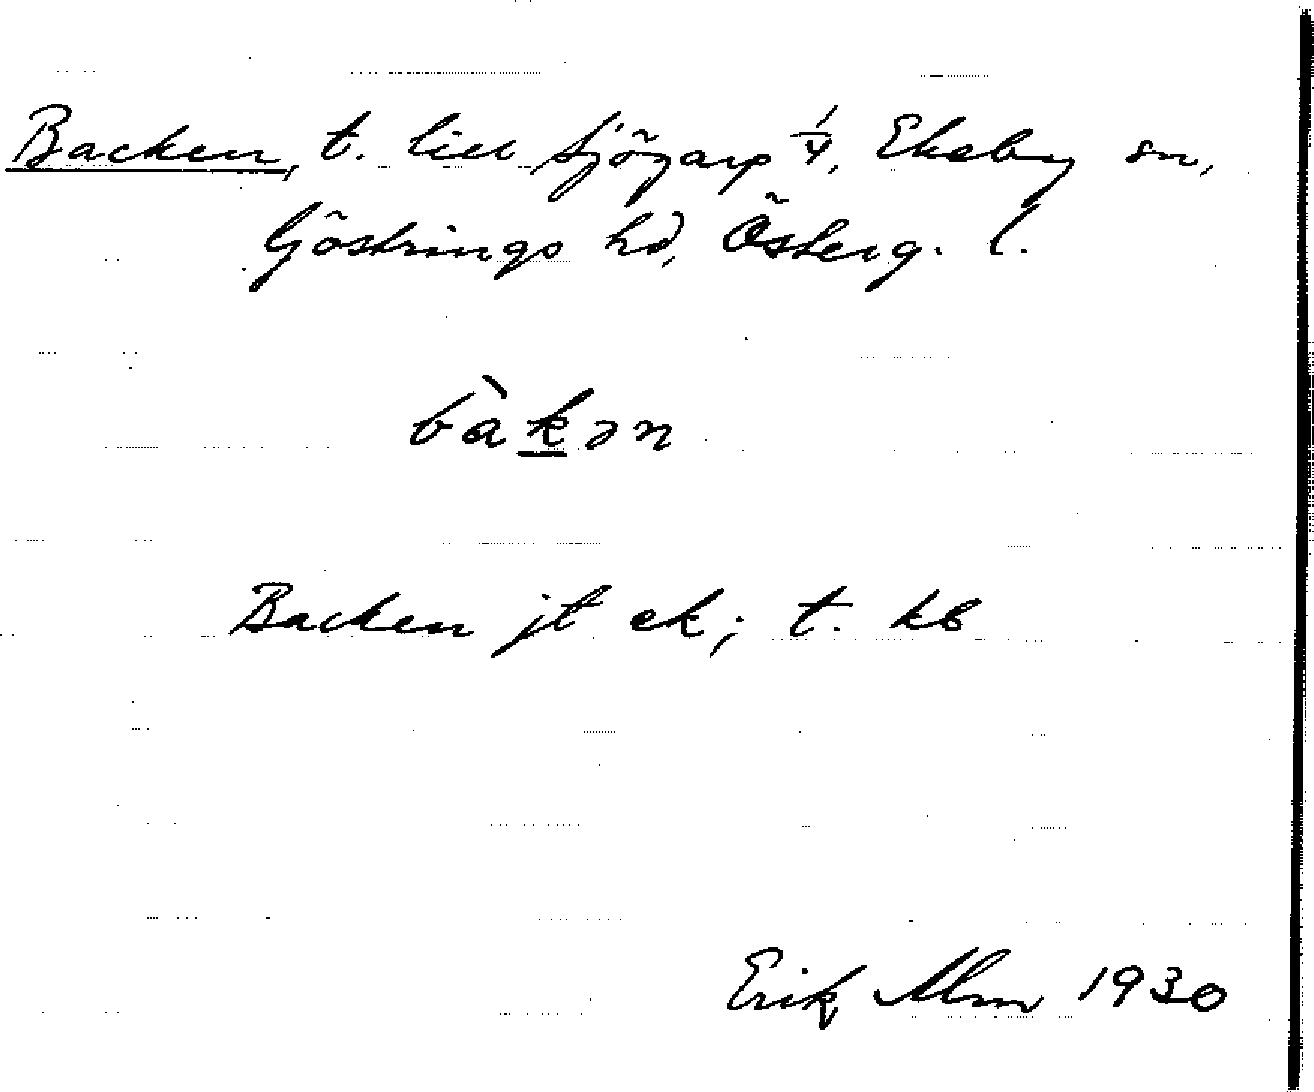 Backen, t. till Sjögarp 1/4, Ekeby sn,
Göstrings hd, Österg. l.
bàkən
Backen jt ek; t. kb
Erik Alm 1930